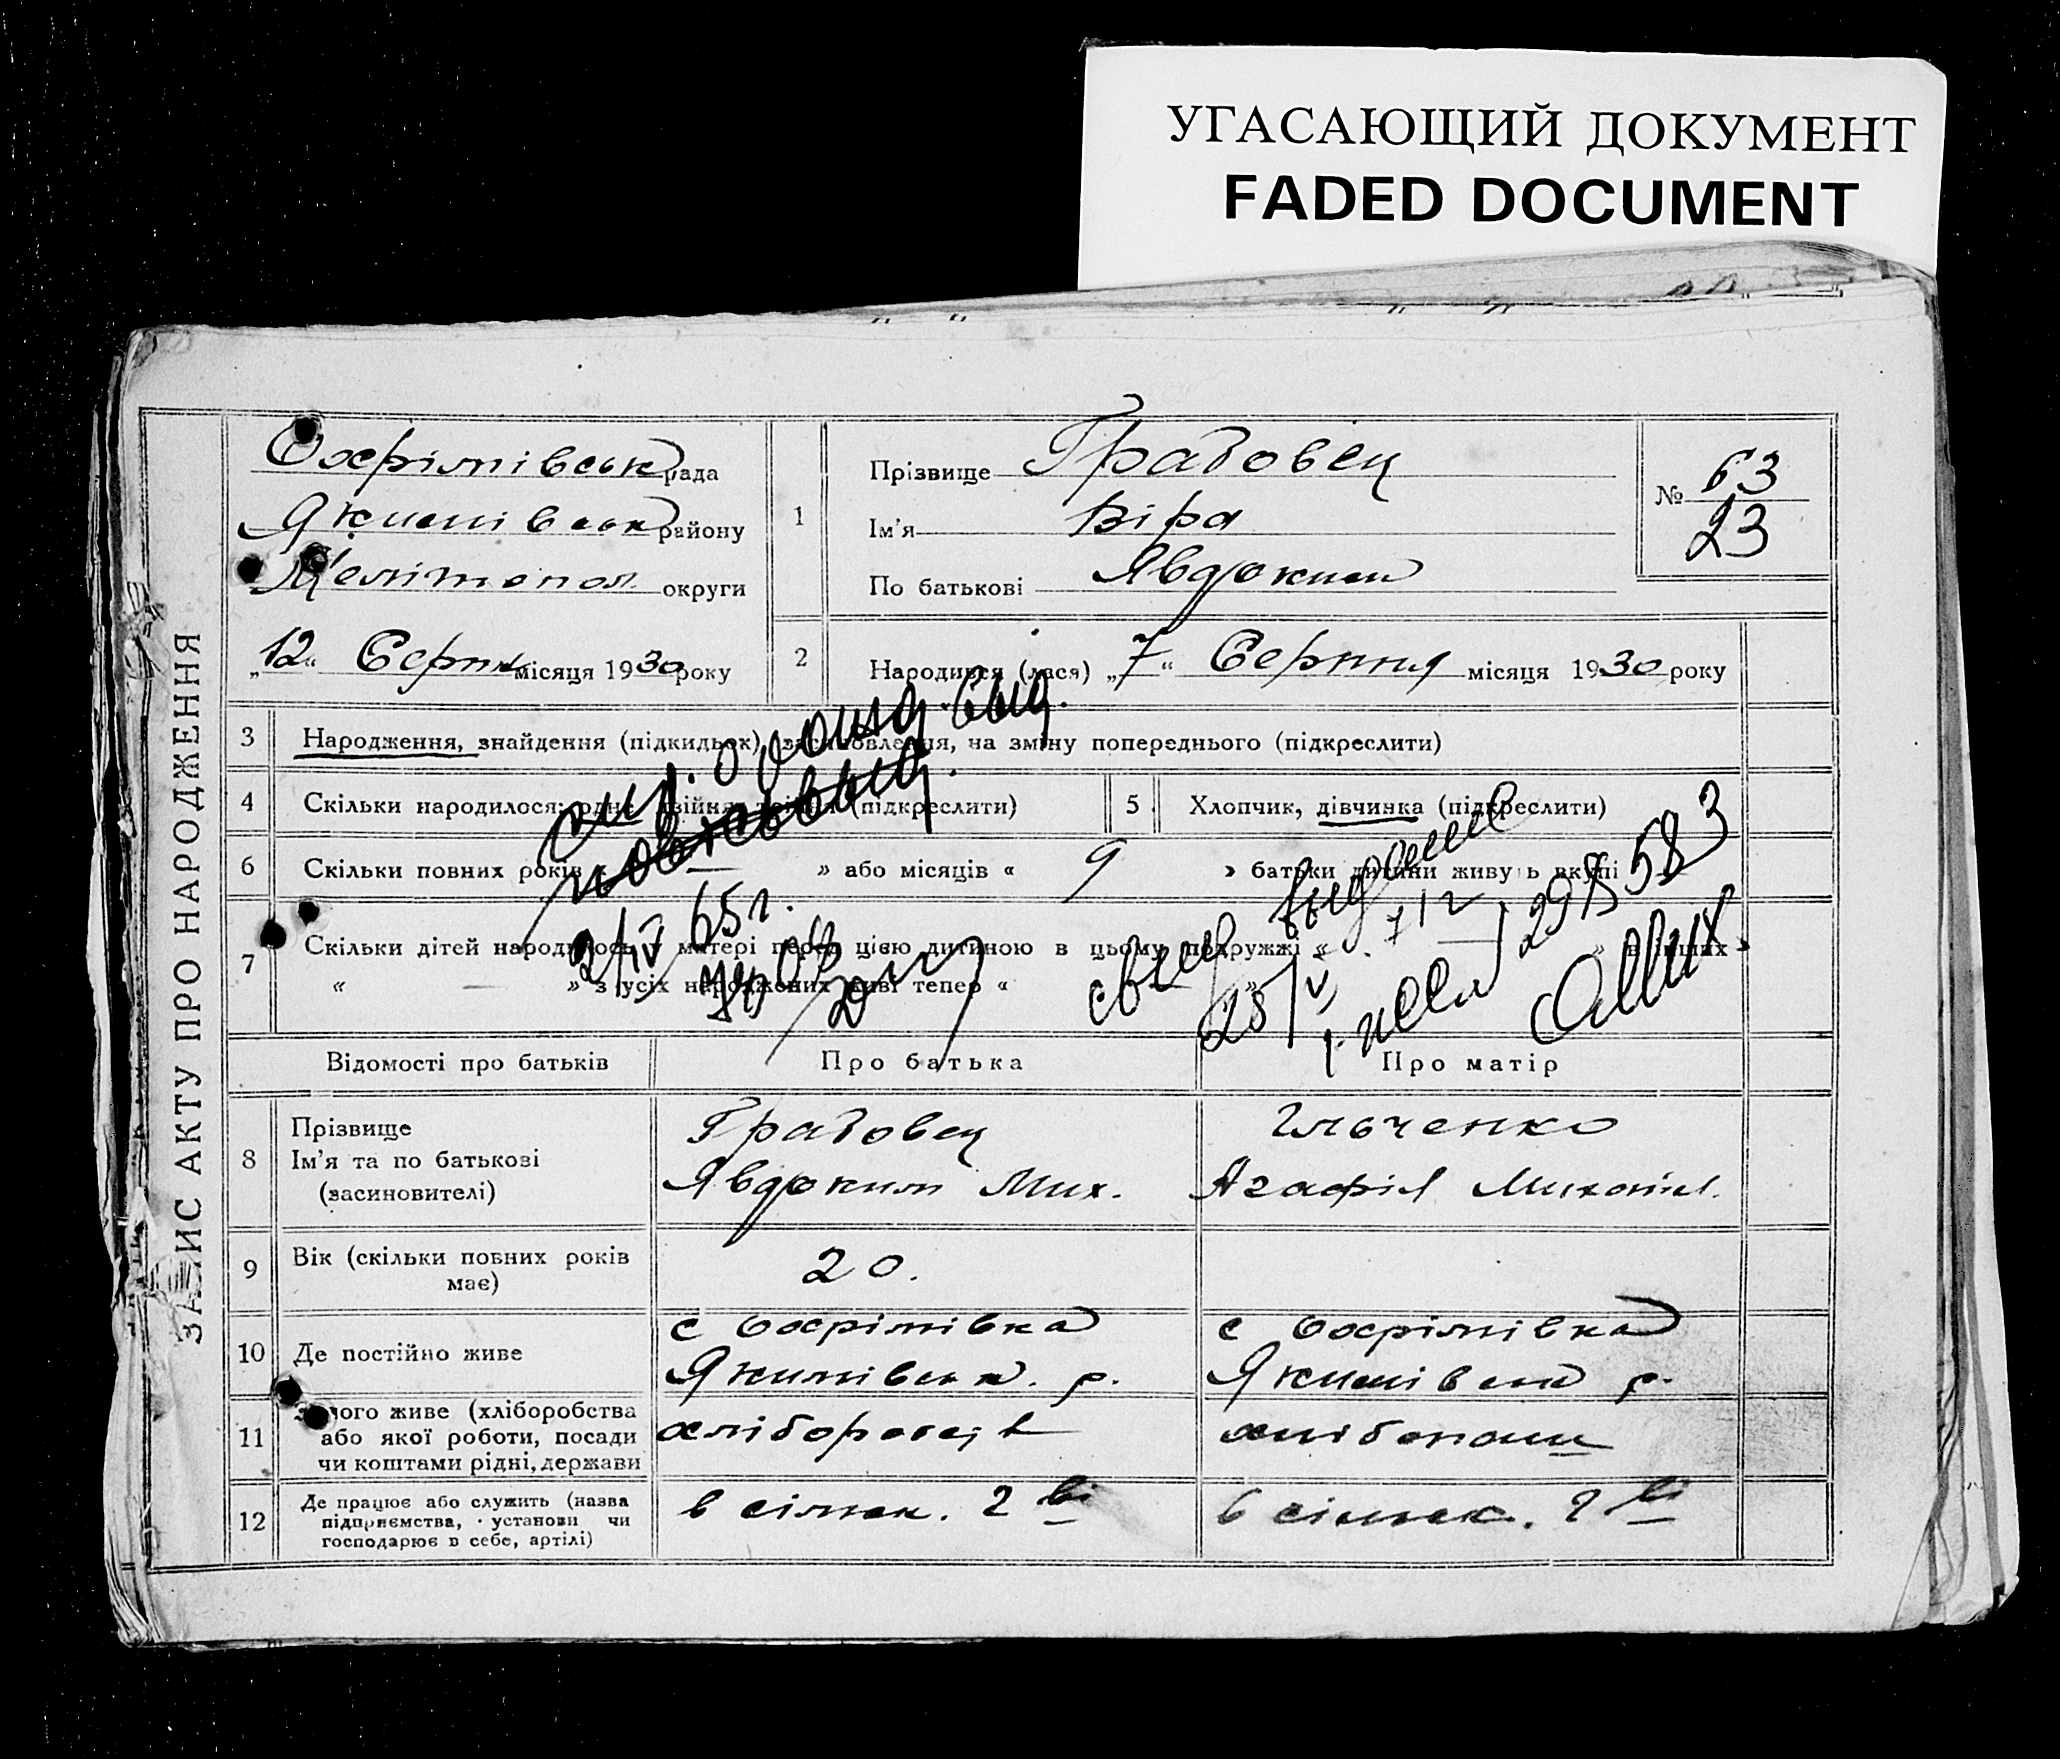 УГАСАЮЩИЙ ДОКУМЕНТ
FADED DOCUMENT
ЗАПИС АКТУ ПРО НАРОДЖЕННЯ
Охрімівськ рада
Якимівськ району
Мелітопол. округи
„12“ Серпн місяця 1930 року
1
Прізвище Градовец
Ім'я Віра
По батькові Явдоким
№ 63
23
2
Народився (лася) „7“ Серпня місяця 1930 року
3 Народження, знайдення (підкидьок) засиновлення, на зміну попереднього (підкреслити)
4 Скільки народилося: одне двійня, трійня (підкреслити)
5 Хлопчик, дівчинка (підкреслити)
6 Скільки повних років — » або місяців « 9 » батьки дитини живуть вкупі
7 Скільки дітей народилось у матері перед цією дитиною в цьому подружжі « » в інших »
« — » з усіх народжених живі тепер «
выд.
2/IV 65 г.
Відомості про батьків Про батька Про матір
8 Прізвище
Ім'я та по батькові
(засиновителі)
Градовец
Явдоким Мих.
Ільченко
Агафія Михайл.
9 Вік (скільки повних років
має)
20.
10 Де постійно живе
с Охрімівка
Якимівськ. р.
с Охрімівка
Якимівськ р.
11 З чого живе (хліборобства
або якої роботи, посади
чи коштами рідні, держави
12 Де працює або служить (назва
підприємства, установи чи
господарює в себе, артілі)
в сільск.
в сільск.